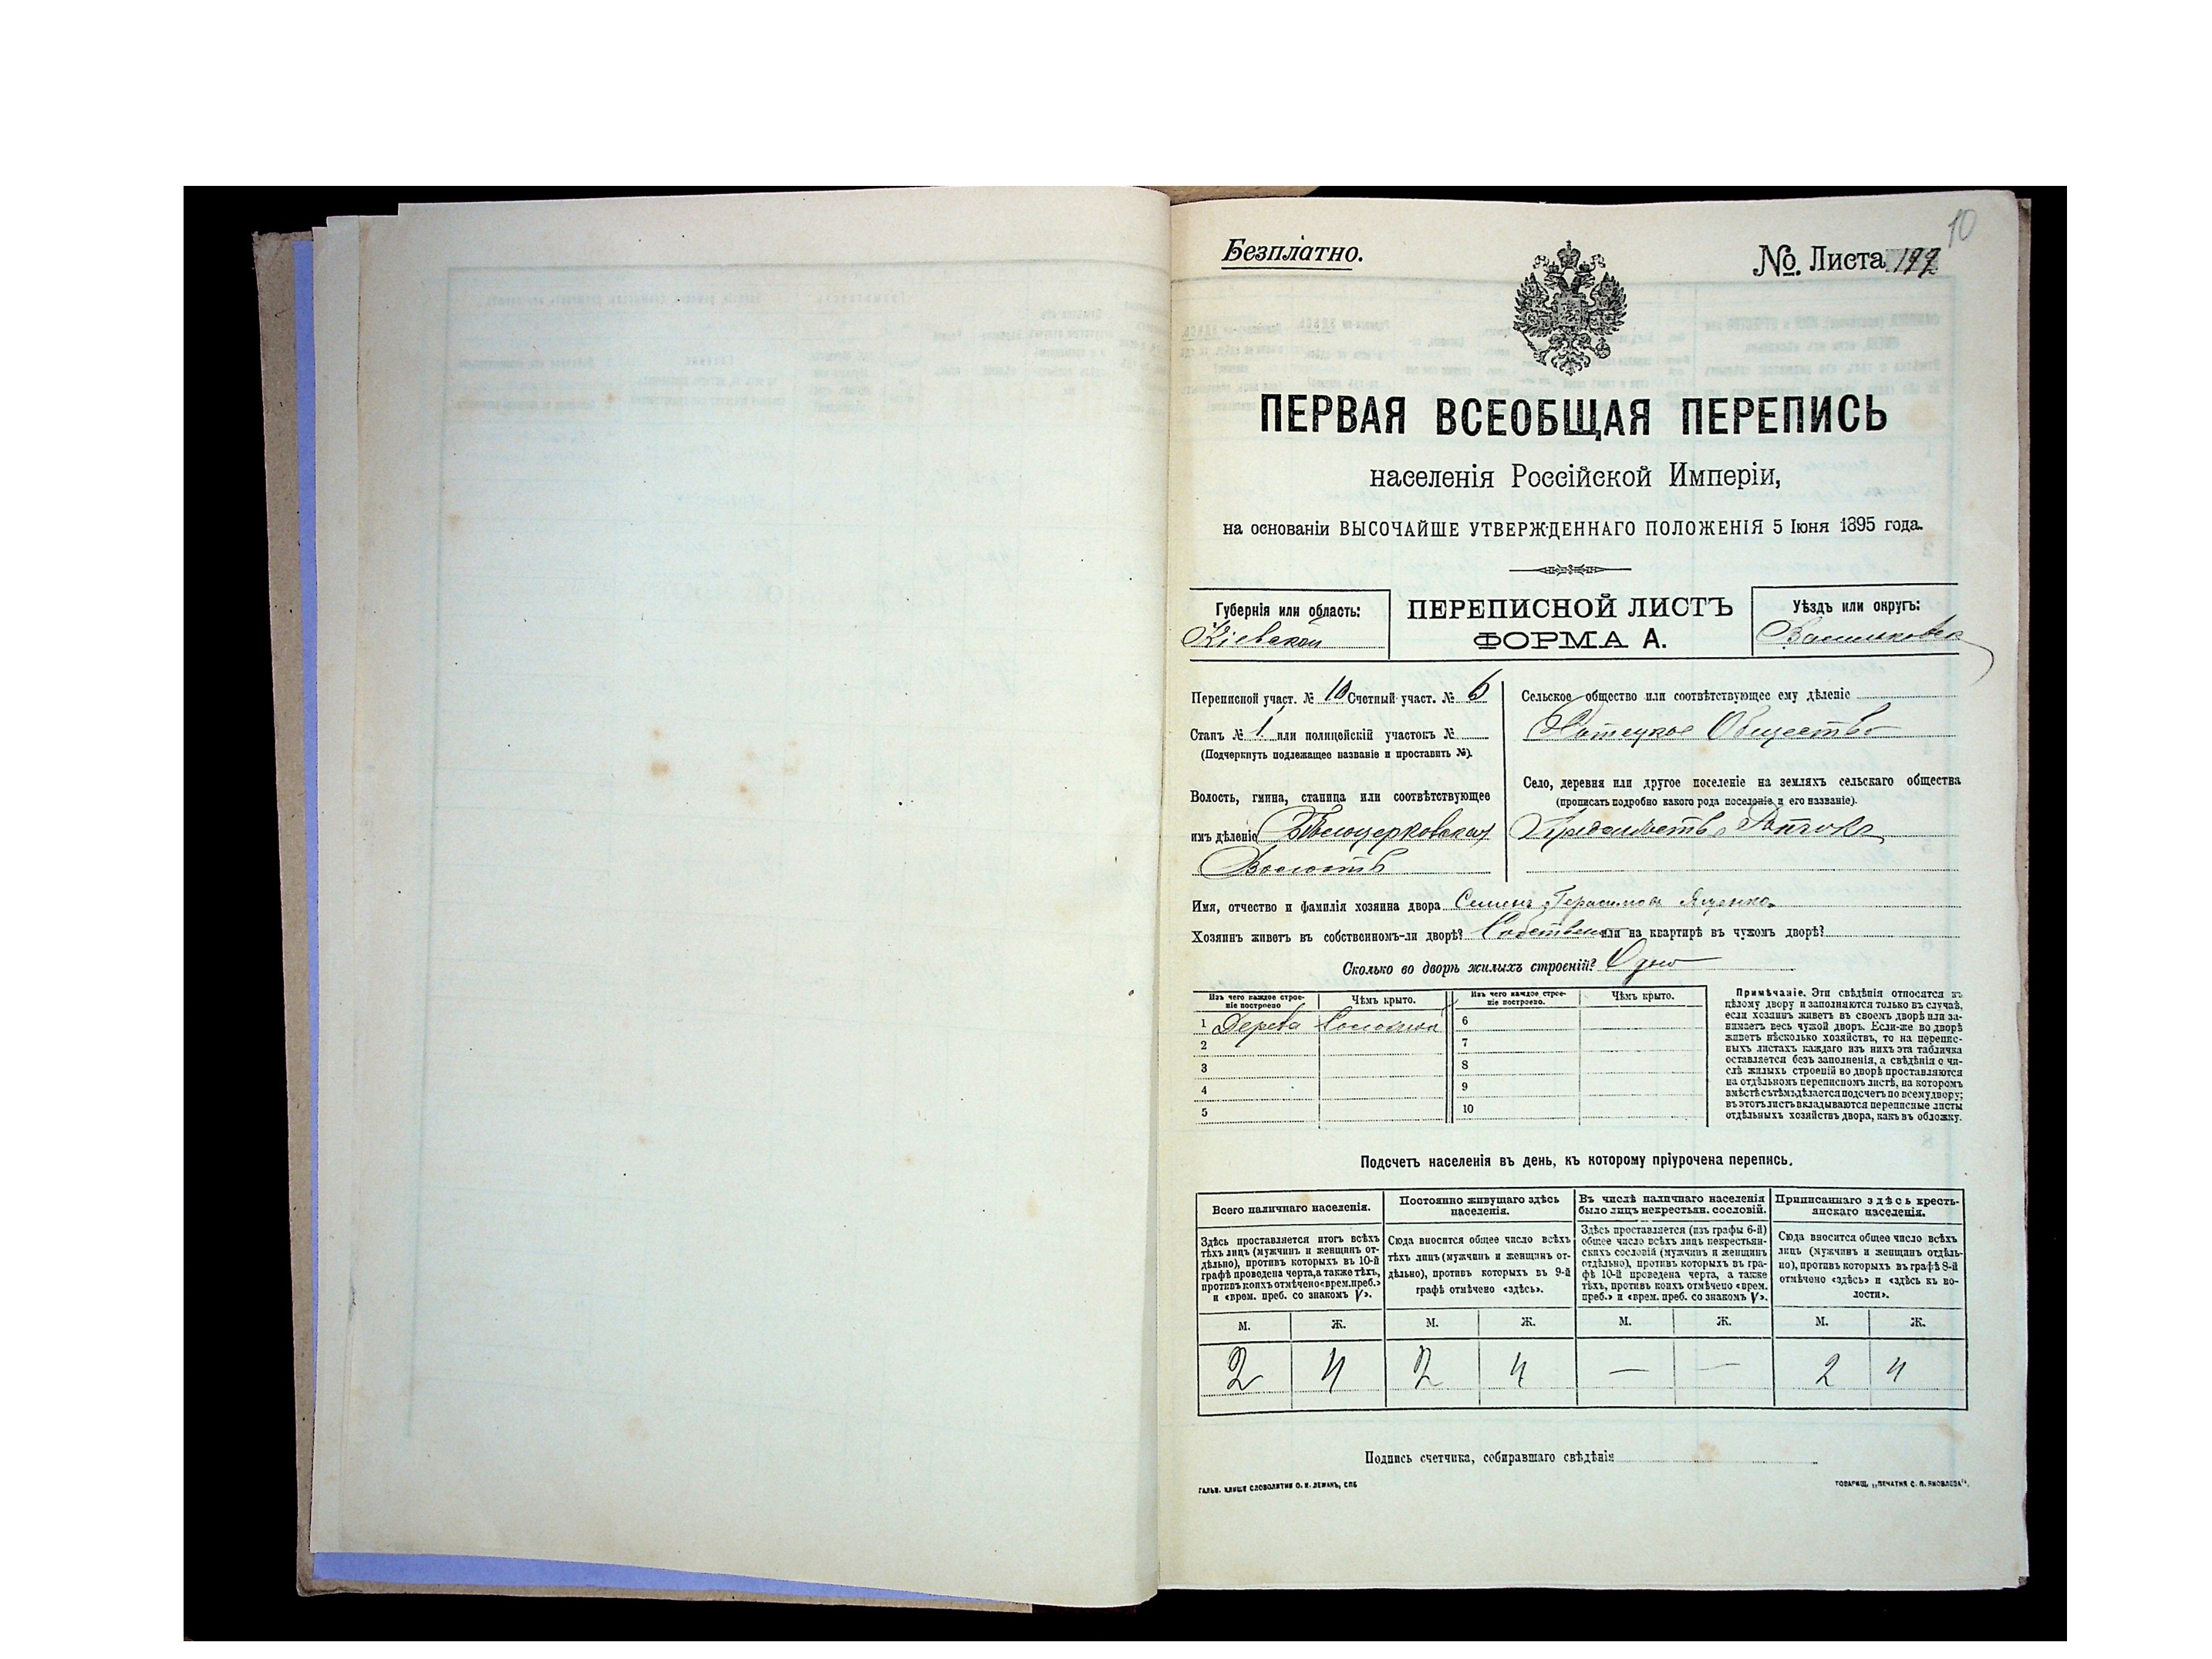 10
Безплатно.
№. Листа
ПЕРВАЯ ВСЕОБЩАЯ ПЕРЕПИСЬ
населенія Россійской Имперіи,
на основаніи ВЫСОЧАЙШЕ УТВЕРЖДЕННАГО ПОЛОЖЕНІЯ 5 Іюня 1895 года.
Губернія или область:
Кіевской
ПЕРЕПИСНОЙ ЛИСТЪ
ФОРМА А.
Уѣздъ или округъ:
Васильковск
Переписной участ. № 10 Счетный участ. № 6
Станъ № 1 или полицейскій участокъ №
(Подчеркнуть подлежащее названіе и проставить №).
Волость, гмина, станица или соотвѣтствующее
имъ дѣленіе Бѣлоцерковская
Волость
Сельское общество или соотвѣтствующее ему дѣленіе
Общество
Село, деревня или другое поселеніе на земляхъ сельскаго общества
(прописать подробно какого рода поселеніе и его названіе).
Предмѣстье
Имя, отчество и фамилія хозяина двора Семенъ Герасимовъ Яценко
Хозяинъ живетъ въ собственномъ-ли дворѣ? или на квартирѣ въ чужомъ дворѣ?
Сколько во дворѣ жилыхъ строеній? Одно
Изъ чего каждое строеніе построено
Чѣмъ крыто.
Изъ чего каждое строеніе построено.
Чѣмъ крыто.
1 Дерева Соломой
2
3
4
5
6
7
8
9
10
Примѣчаніе. Эти свѣдѣнія относятся къ
цѣлому двору и заполняются только въ случаѣ,
если хозяинъ живетъ въ своемъ дворѣ или за-
нимаетъ весь чужой дворъ. Если-же во дворѣ
живетъ нѣсколько хозяйствъ, то на перепис-
ныхъ листахъ каждаго изъ нихъ эта табличка
оставляется безъ заполненія, а свѣдѣнія о чи-
слѣ жилыхъ строеній во дворѣ проставляются
на отдѣльномъ переписномъ листѣ, на которомъ
вмѣстѣ съ тѣмъ дѣлается подсчетъ по всему двору;
въ этотъ листъ вкладываются переписные листы
отдѣльныхъ хозяйствъ двора, какъ въ обложку.
Подсчетъ населенія въ день, къ которому пріурочена перепись.
Всего наличнаго населенія.
Здѣсь проставляется итогъ всѣхъ
тѣхъ лицъ (мужчинъ и женщинъ от-
дѣльно), противъ которыхъ въ 10-й
графѣ проведена черта, а также тѣхъ,
противъ коихъ отмѣчено «врем. преб.»
и «врем. преб. со знакомъ V».
Постоянно живущаго здѣсь
населенія.
Сюда вносится общее число всѣхъ
тѣхъ лицъ (мужчинъ и женщинъ от-
дѣльно), противъ которыхъ въ 9-й
графѣ отмѣчено «здѣсь».
Въ числѣ наличнаго населенія
было лицъ некрестьян. сословій.
Здѣсь проставляется (изъ графы 6-й)
общее число всѣхъ лицъ некрестьян-
скихъ сословій (мужчинъ и женщинъ
отдѣльно), противъ которыхъ въ гра-
фѣ 10-й проведена черта, а также
тѣхъ, противъ коихъ отмѣчено «врем.
преб.» и «врем. преб. со знакомъ V».
Приписаннаго здѣсь кресть-
янскаго населенія.
Сюда вносится общее число всѣхъ
лицъ (мужчинъ и женщинъ отдѣль-
но), противъ которыхъ въ графѣ 8-й
отмѣчено «здѣсь» и «здѣсь къ во-
лости».
М. Ж. М. Ж. М. Ж. М. Ж.
2 4 2 4 — — 2 4
Подпись счетчика, собиравшаго свѣдѣнія
ГАЛЬВ. КЛИШЕ СЛОВОЛИТНИ О. И. ЛЕМАНЪ, СПБ
ТОВАРИЩ. „ПЕЧАТНЯ С. П. ЯКОВЛЕВА“.